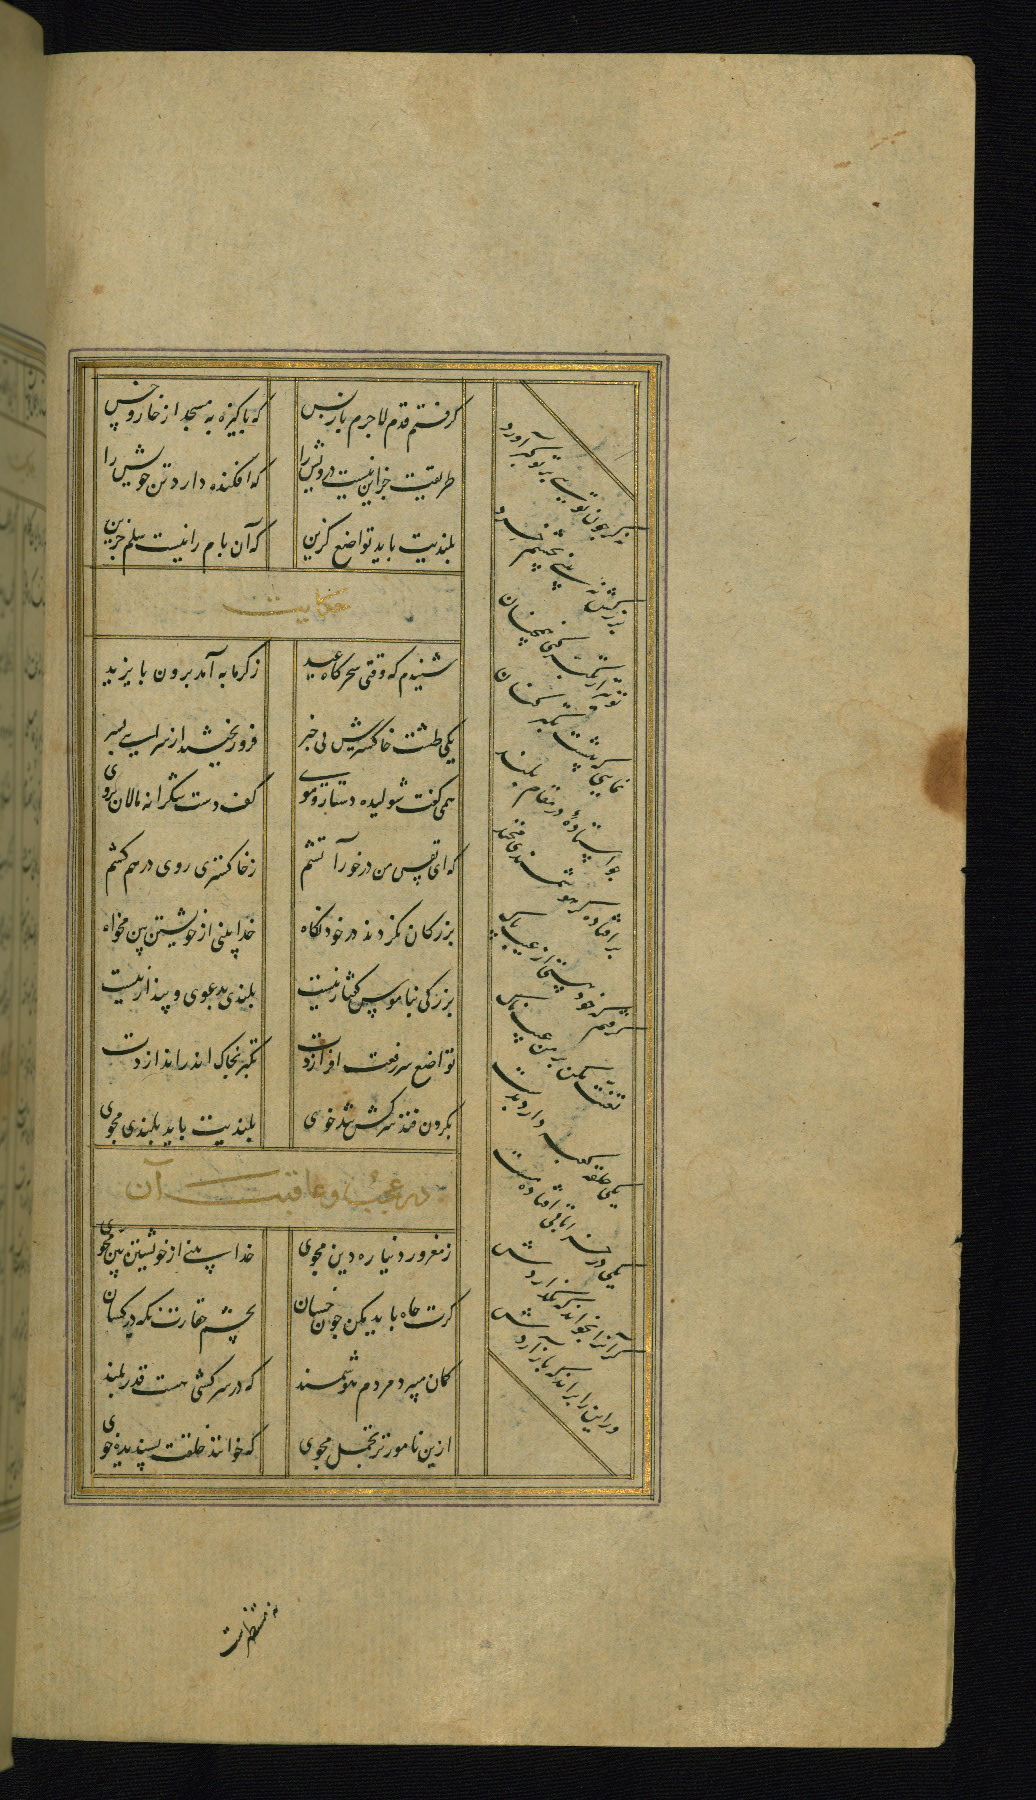 گرفتم قدم لاجرم بازپس
که پاکیزه به مسجد از خار و خس
طریقت جز این نیست درویش را
که افکنده دارد تن خویش را
بلندیت باید تواضع گزین
که آن بام را نیست سلم جزین
حکایت
شنیدم که وقتی سحرگاه عید
ز گرمابه آمد برون بایزید
یکی طشت خاکسترش بی خبر
فرو ریختند از سرایی بسر
همی گفت شولیده دستار و موی
کف دست شکرانه مالان بروی
که ای نفس من در خور آتشم
ز خاکستری روی در هم کشم
بزرگان نکردند در خود نگاه
خدا بینی از خویشتن بین مخواه
بزرگی بناموس گفتار نیست
بلندی بدعوی و پندار نیست
تواضع سر رفعت افرازدت
تکبر بخاک اندر اندازدت
بگردن فتد سرکش تند خوی
بلندیت باید بلندی مجوی
در عجب و عاقبت آن
ز مغرور دنیا ره دین مجوی
خدا بینی از خویشتن بین مجوی
گرت جاه باید مکن چون خسان
بچشم حقارت نگه در کسان
گمان میبرد مردم هوشمند
که در سرکشی هست قدر بلند
ازین نامورتر تجمل مجوی
که خوانند خلقت پسندیده خوی
نه گر چون تویی بر تو کبر آورد
بزرگش نبینی بچشم خرد
تو نیز ار تکبر کنی همچنان
نمایی که پیشت تکبر کنان
چو استادهٔ در مقام بلند
بر افتاده گر هوشمندی مخند
گرفتم که خود هستی از عیب پاک
تعنت مکن بر من عیب ناک
یکی حلقه کعبه دارد بدست
یکی در خراباتی افتاده مست
گر آنرا بخواند که نگذاردش
ور این را براند که باز آردش
نه مستظهرست